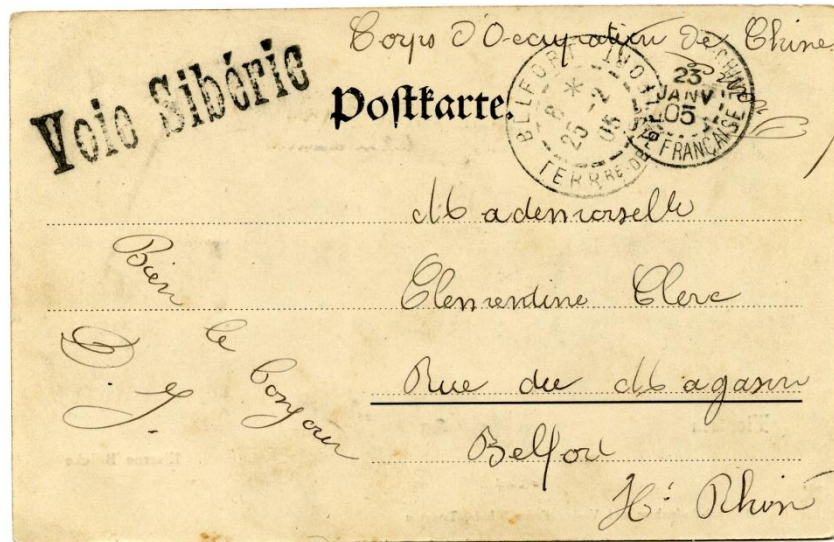 Corps d'Occupation de Chine
Voie Sibérie
Postkarte.
BELFORT
8
25 -2
05
TERRRE DE BELFORT
CHINE
23
JANV
05
FRANÇAISE
Mademoiselle
Clementine Clerc
Rue du Magasin
Belfort
Ht Rhin
Bien le bonjour
D. J.